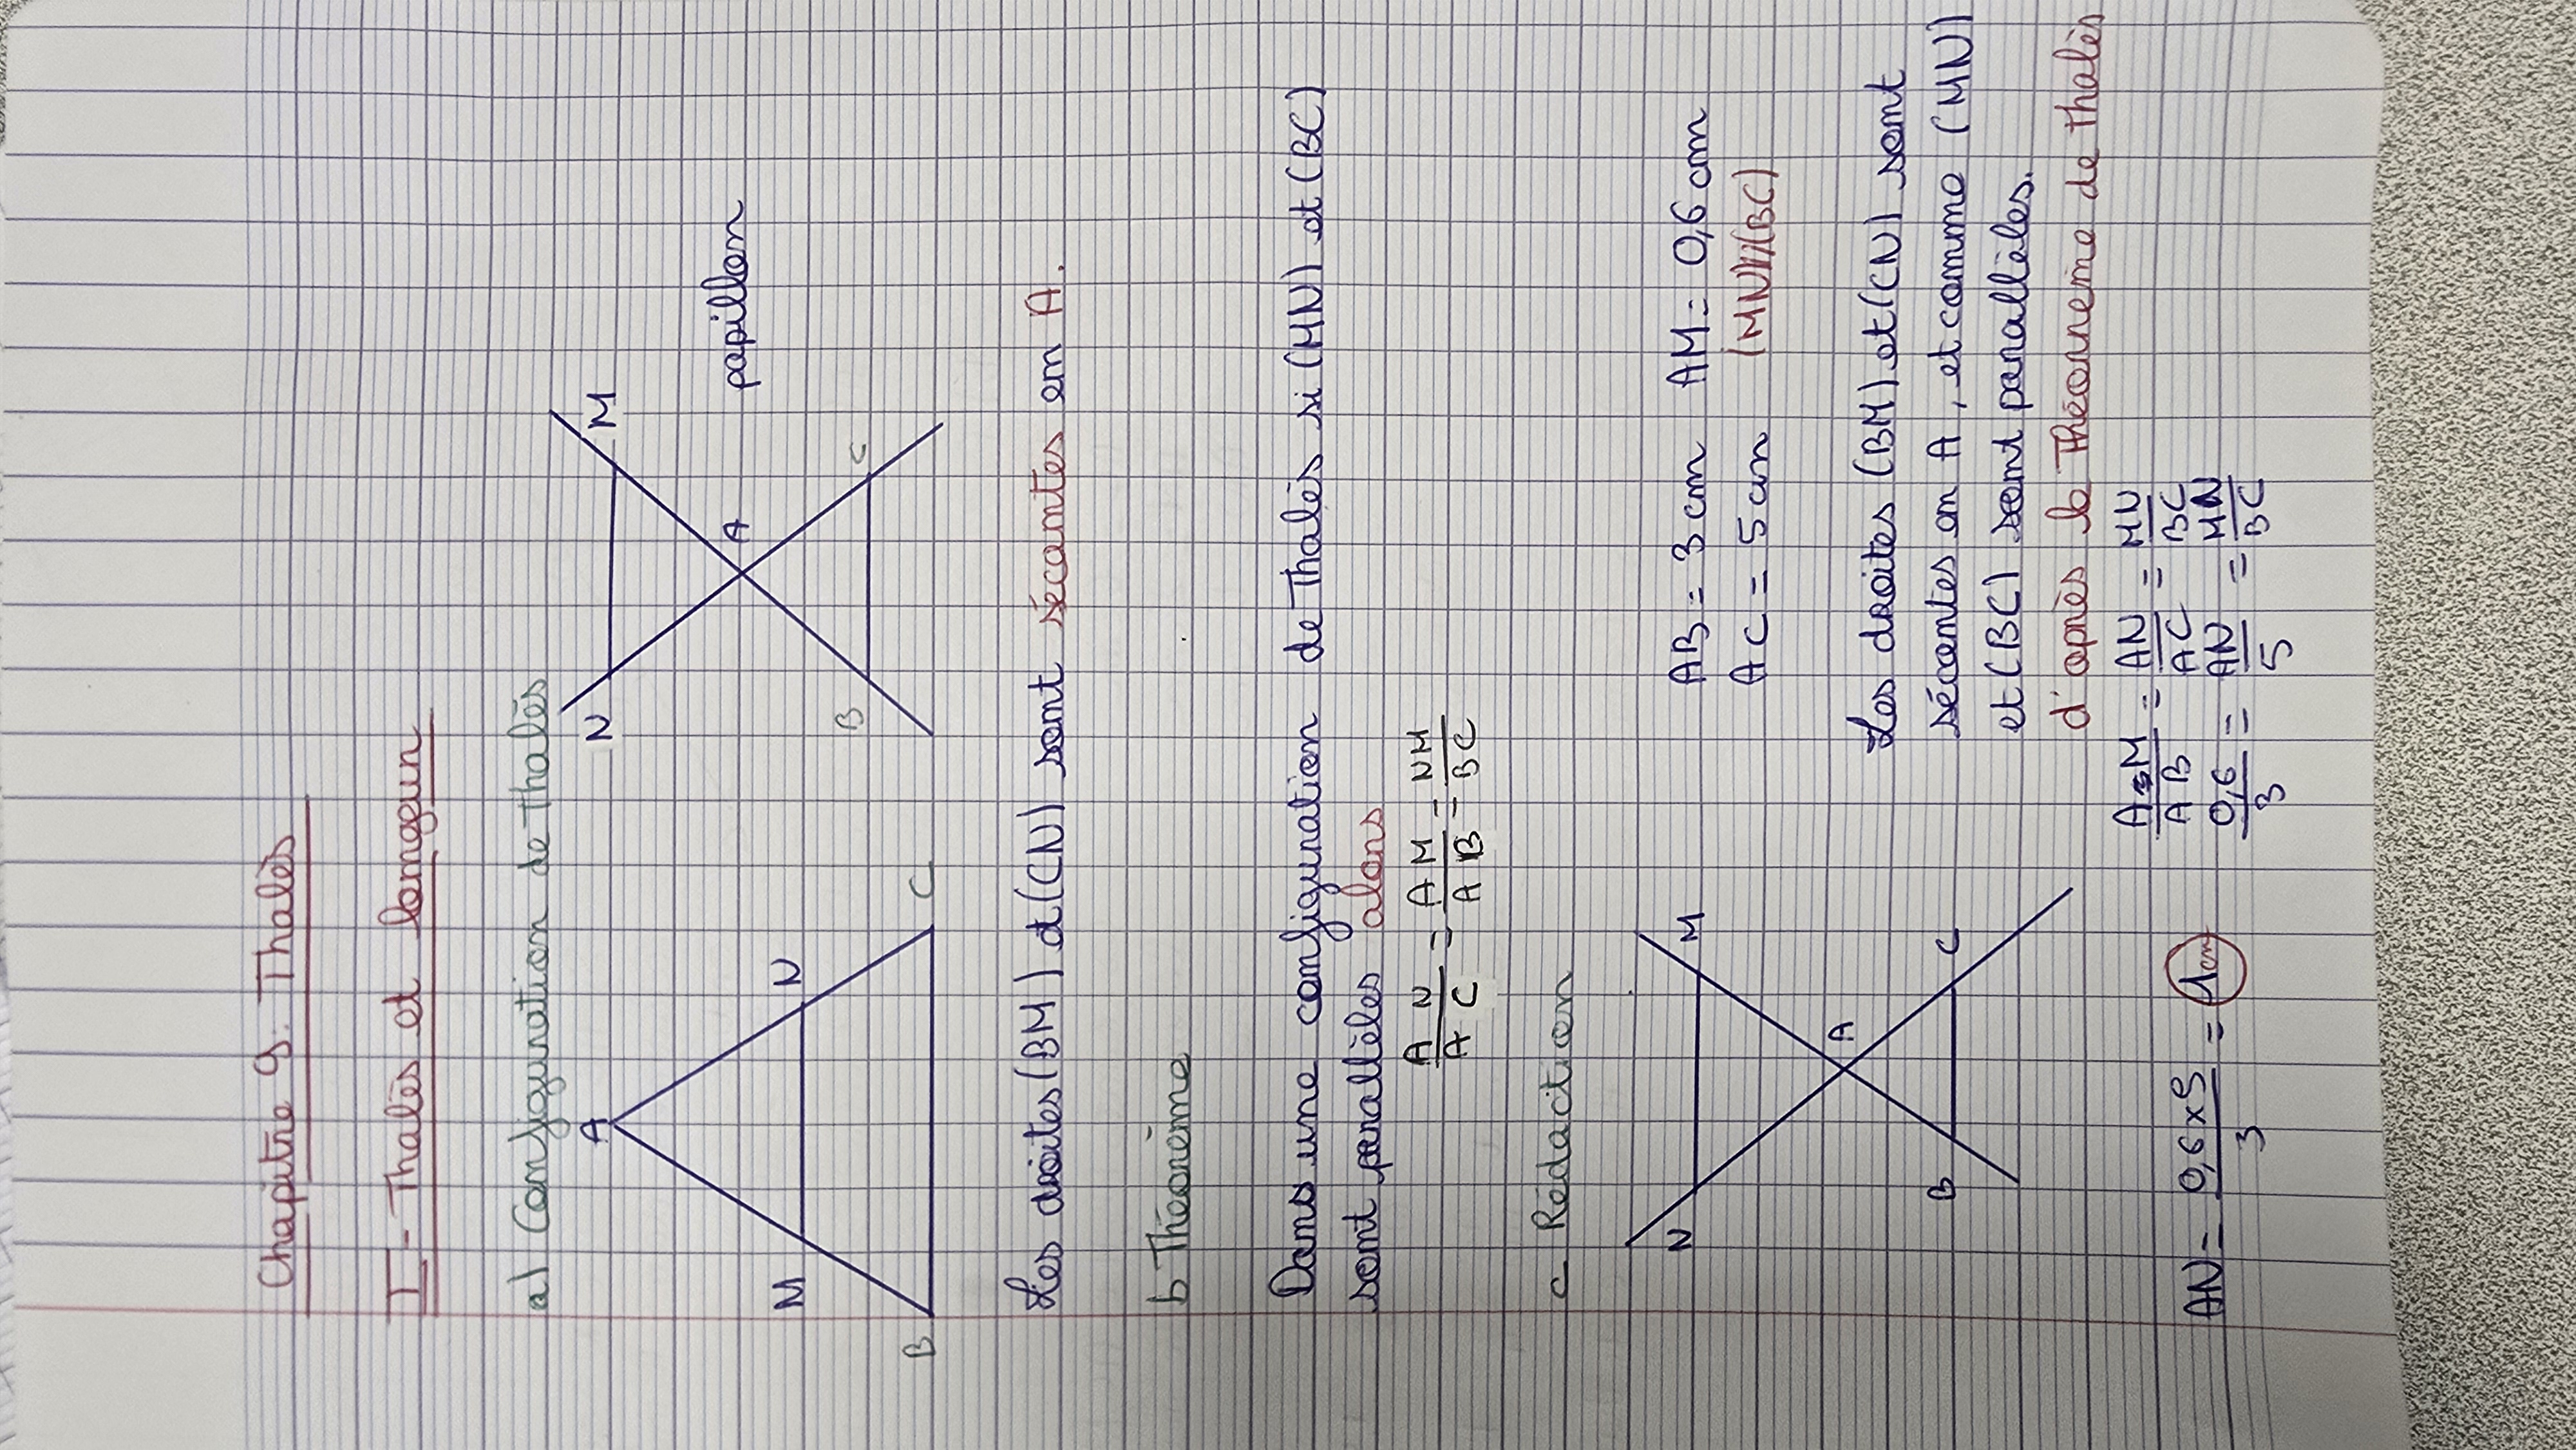 Chapitre 9: Thalès
I - Thalès et longeur
a) Configuration de Thalès
A
M N
B C
N M
A
B C
papillon
Les droites (BM) et (CN) sont sécantes en A.
b Théorème
Dans une configuration de Thalès si (MN) et (BC)
sont parallèles alors
AN/AC = AM/AB = NM/BC
c - Rédaction
N M
A
B C
AB = 3 cm AM = 0,6 cm
AC = 5 cm (MN)//(BC)
Les droites (BM) et (CN) sont
sécantes en A, et comme (MN)
et (BC) sont parallèles.
d'après le Théoreme de thalès
AM/AB = AN/AC = MN/BC
0,6/3 = AN/5 = MN/BC
AN = 0,6 x 5/3 = 1 cm